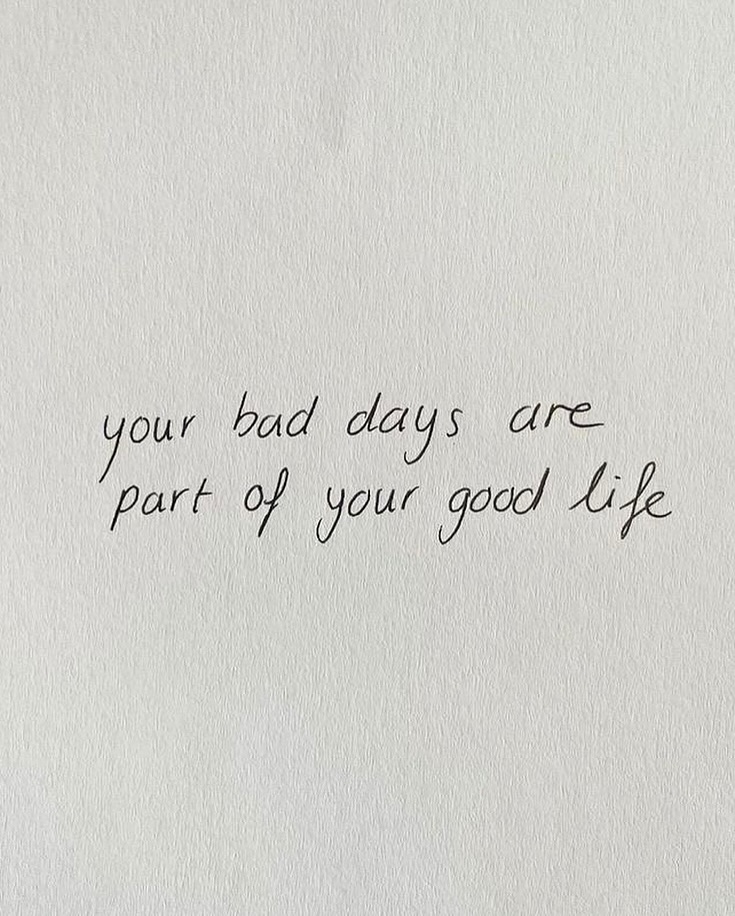 your bad days are
part of your good life